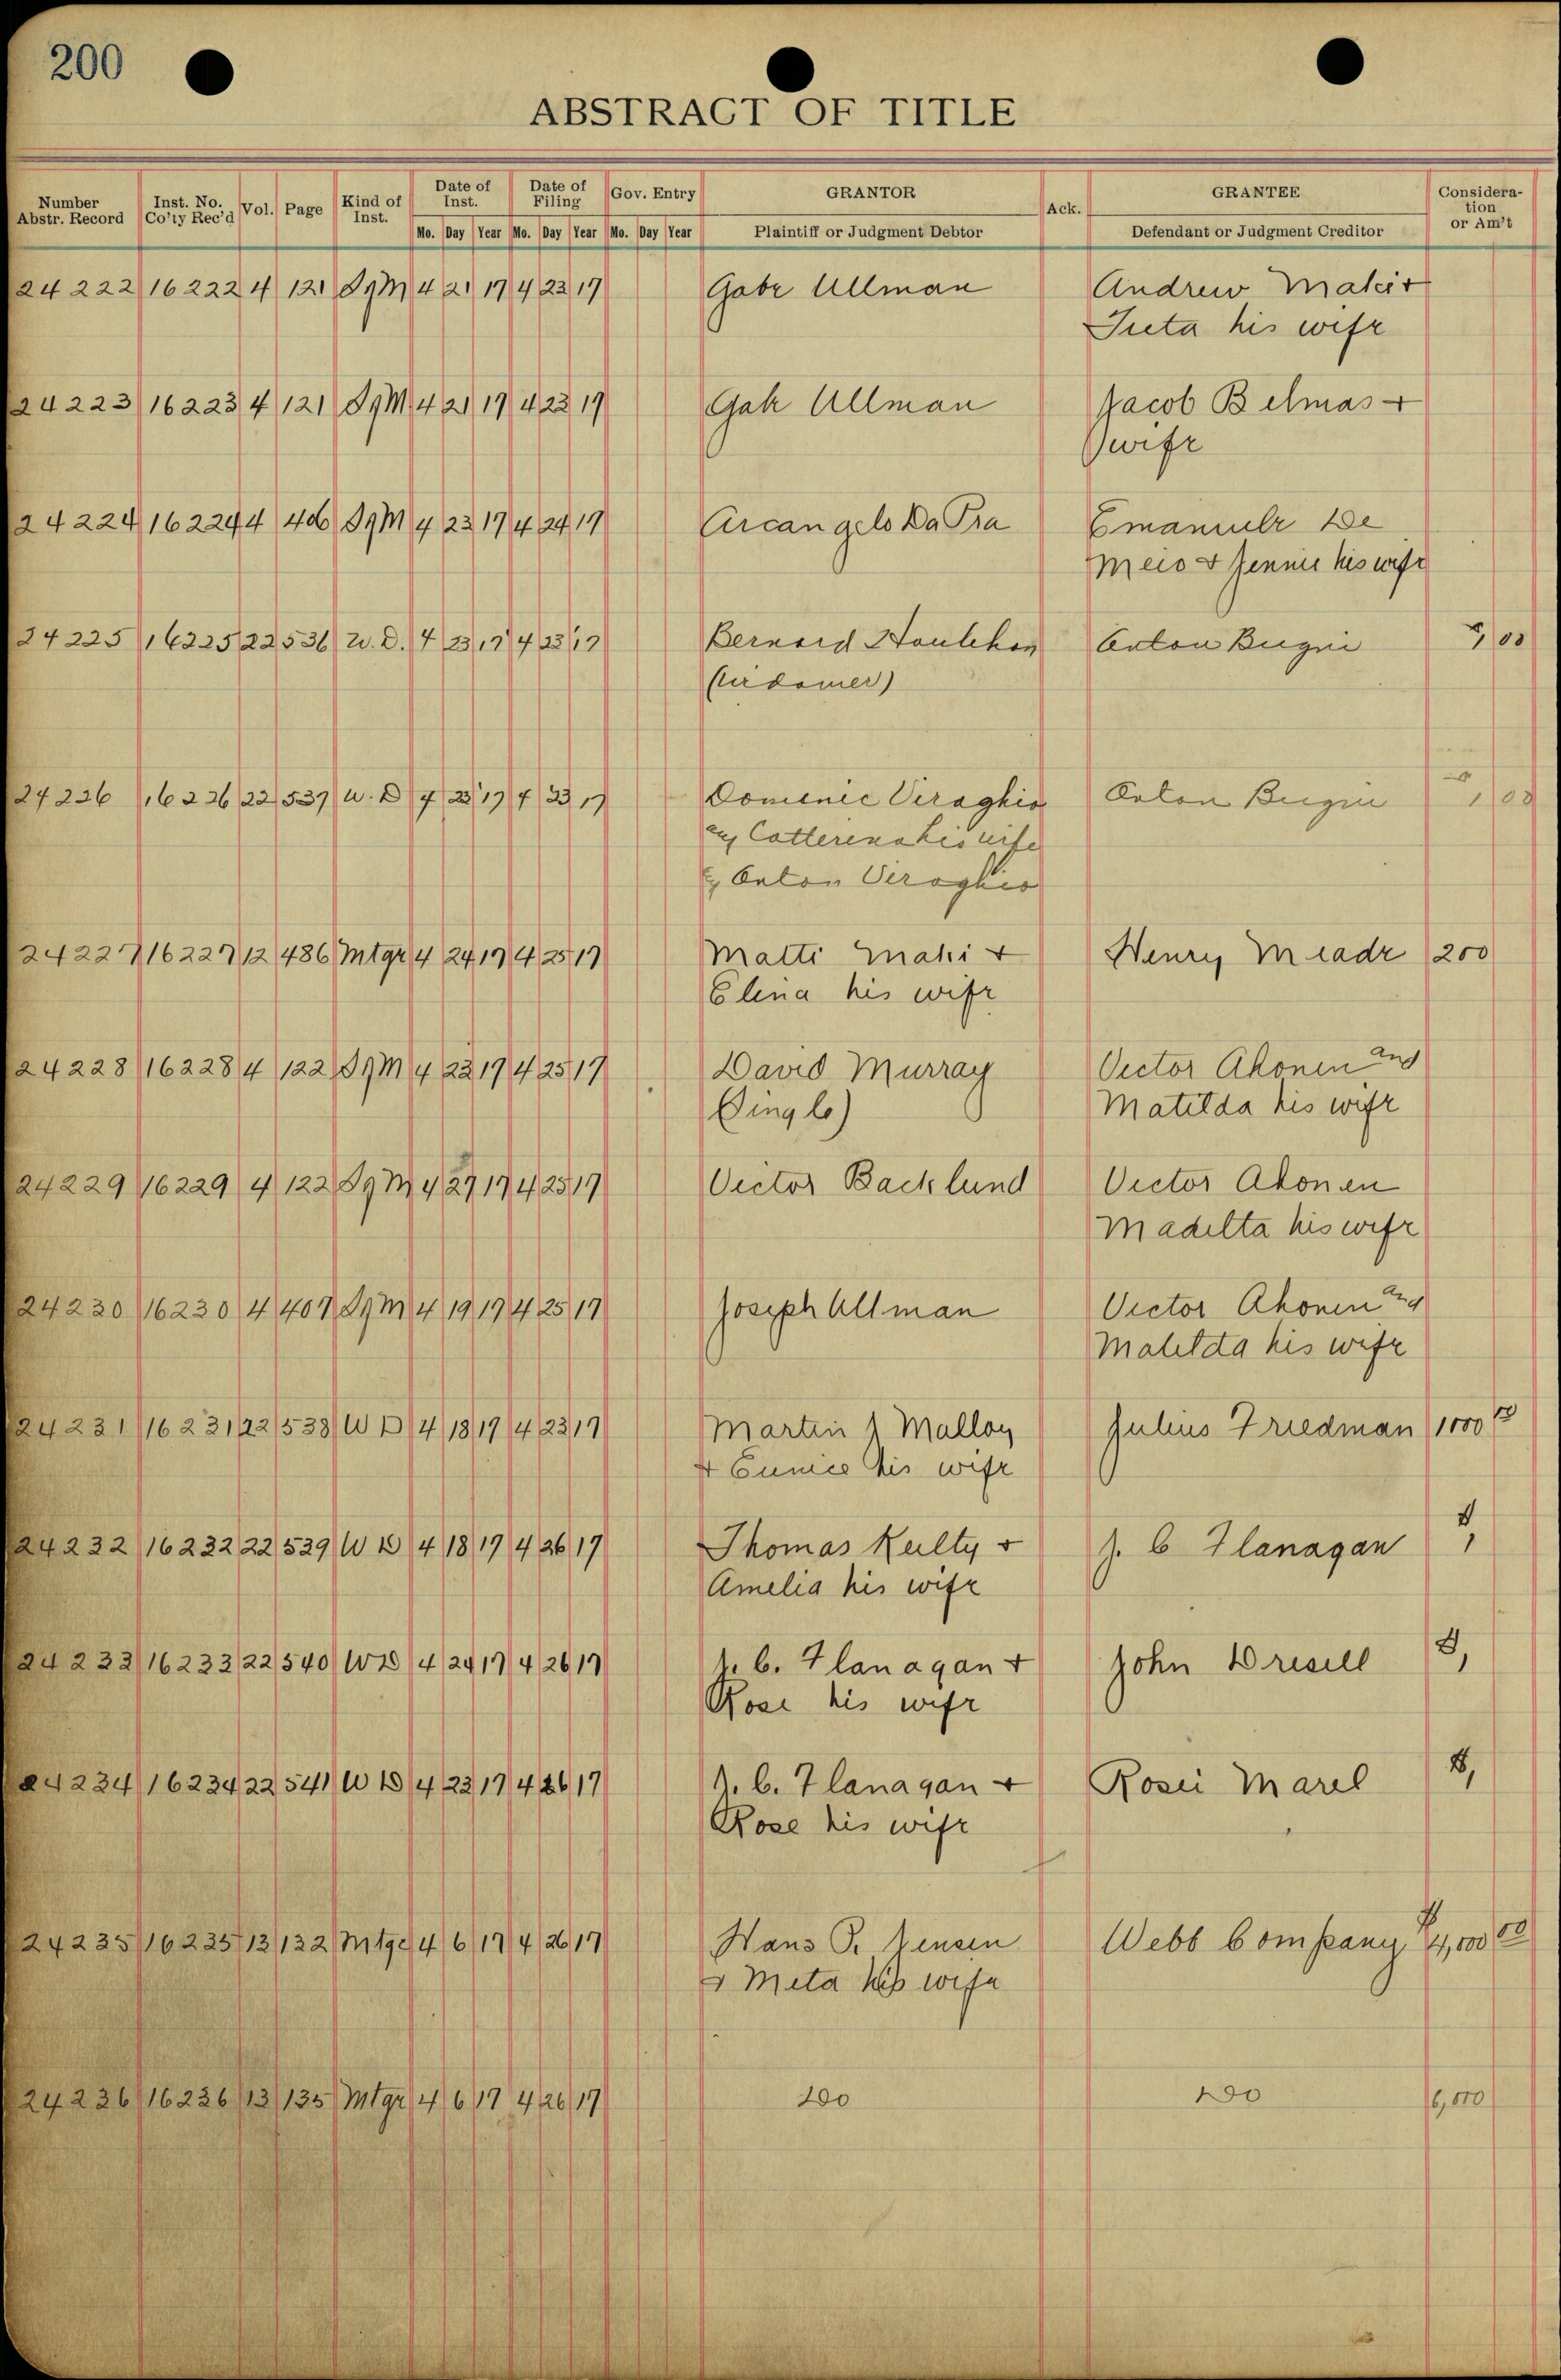 200
ABSTRACT OF TITLE
Number Abstr. Record Inst. No. Co'ty Rec'd Vol. Page Kind of Inst. Date of Inst. Date of Filing Gov. Entry GRANTOR Ack. GRANTEE Considera-tion or Am't
Mo. Day Year Mo. Day Year Mo. Day Year Plaintiff or Judgment Debtor Defendant or Judgment Creditor
24222 16222 4 121 SgM 4 21 17 4 23 17 Gabe Ullman Andrew Maki +
his wife
24223 16223 4 121 SgM 4 21 17 4 23 17 Gabe Ullman Jacob Belmas +
wife
24224 16224 4 406 SgM 4 23 17 4 24 17 Arcangelo Da Pra Emanuele De
Meio + Jennie his wife
24225 16225 22 536 W.D. 4 23 17 4 23 17 Bernard Anton Bugni 1 00
24226 16226 22 537 W.D 4 23 17 4 23 17 Domenic Viraghio Anton Bugni 1 00
Catterena his wife
Anton Viraghio
24227 16227 12 486 Mtge 4 24 17 4 25 17 Matti Maki + Henry Meade 200
Elena his wife
24228 16228 4 122 SgM 4 23 17 4 25 17 David Murray Victor Ahonen and
(Single) Matilda his wife
24229 16229 4 122 SgM 4 27 17 4 25 17 Victor Backlund Victor Ahonen
Madilta his wife
24230 16230 4 407 SgM 4 19 17 4 25 17 Joseph Ullman Victor Ahonen and
Matilda his wife
24231 16231 22 538 WD 4 18 17 4 23 17 Martin J Malloy Julius Friedman 1000
+ Eunice his wife
24232 16232 22 539 WD 4 18 17 4 26 17 Thomas Kulty + J. C Flanagan $1
Amelia his wife
24233 16233 22 540 WD 4 24 17 4 26 17 J. C. Flanagan + John Dresell $1
Rose his wife
24234 16234 22 541 WD 4 23 17 4 26 17 J. C. Flanagan + Rosii Marel $1
Rose his wife
24235 16235 13 132 Mtge 4 6 17 4 26 17 Hans P. Jensen Webb Company $4,000 00
+ Meta his wife
24236 16236 13 135 Mtge 4 6 17 4 26 17 6,000